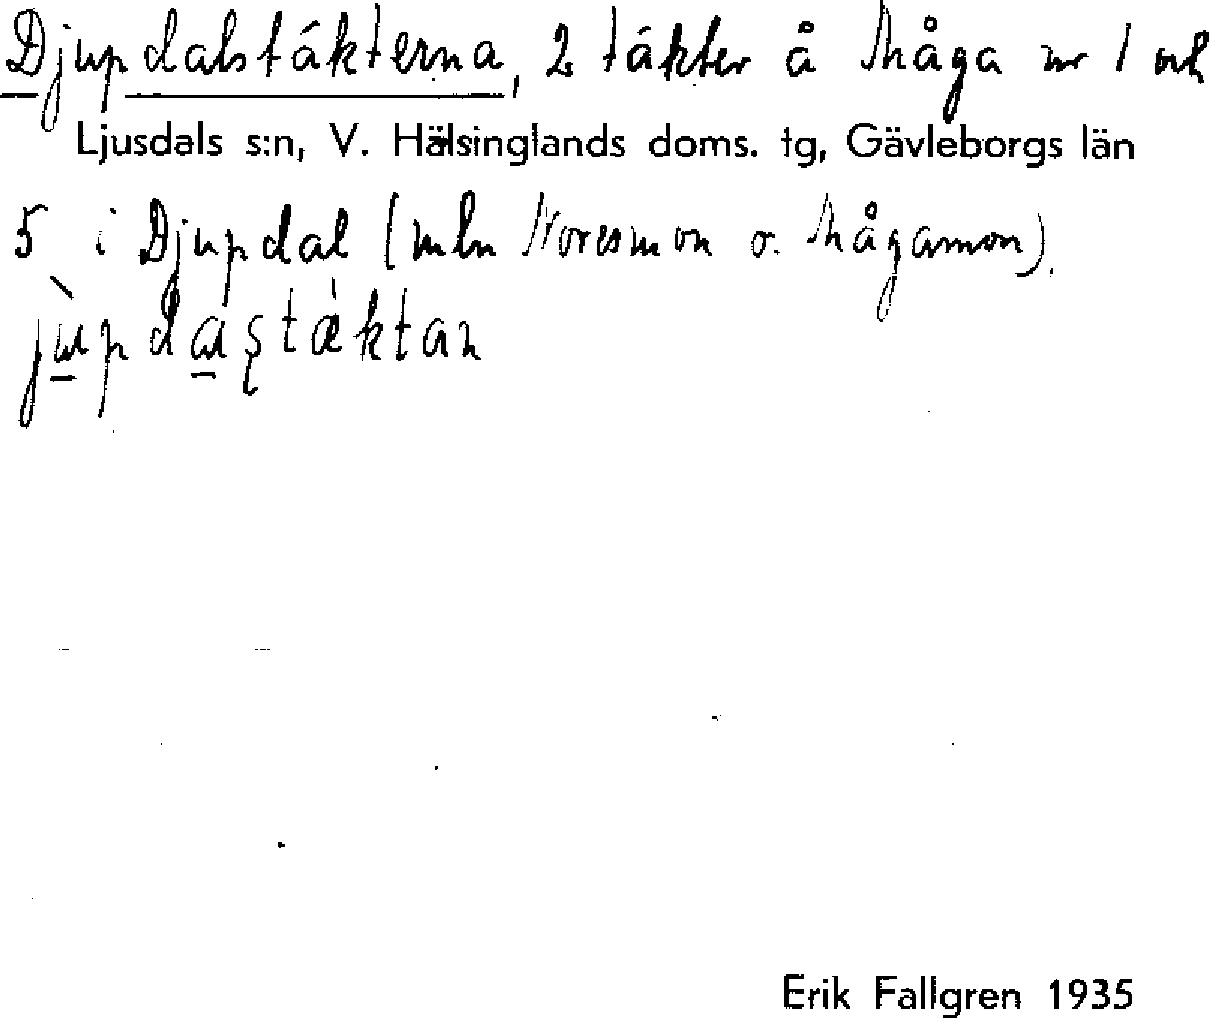 Djupdalstäkterna, 2 täkter å Måga nr 1 och
Ljusdals s:n, V. Hälsinglands doms. tg, Gävleborgs län
5 i Djupdal (mln Noresmon o. Mågamon).
jùpdaʂtæktan
Erik Fallgren 1935